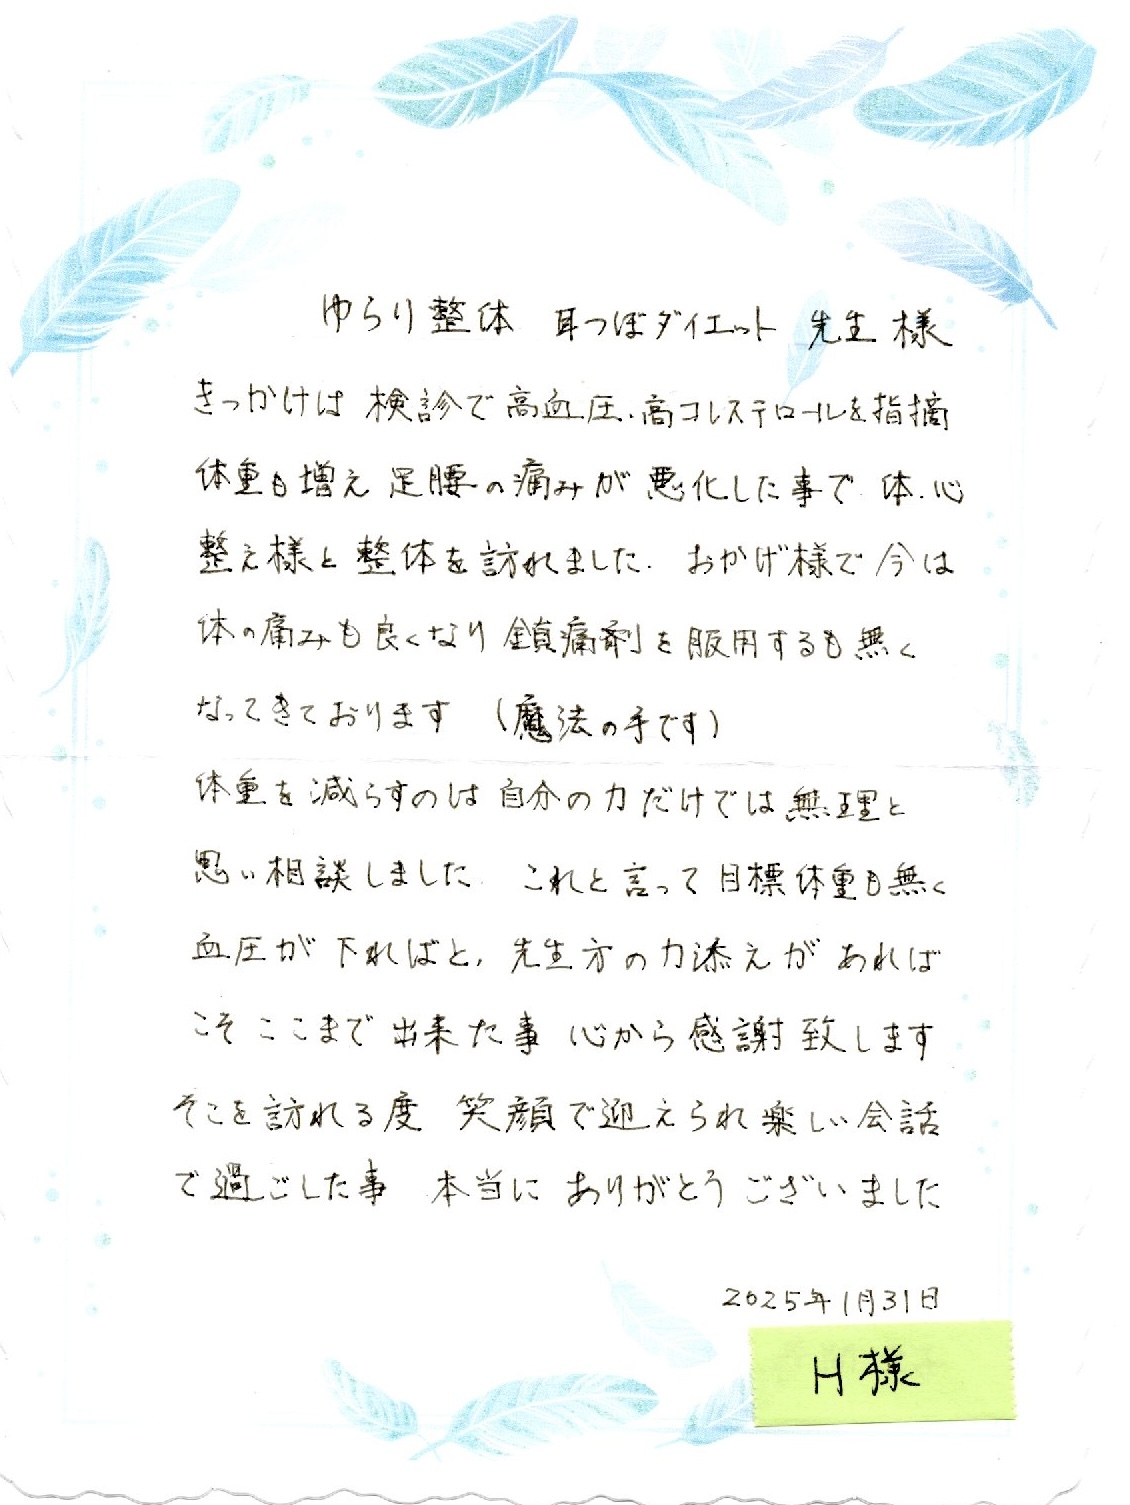 ゆらり整体 耳つぼダイエット 先生様
きっかけは 検診で高血圧.高コレステロールを指摘
体重も増え 足腰の痛みが悪化した事で 体.心
整え様と整体を訪れました. おかげ様で今は
体の痛みも良くなり鎮痛剤を服用するも無く
なってきております (魔法の手です)
体重を減らすのは自分の力だけでは無理と
思い相談しました. これと言って目標体重も無く
血圧が下ればと, 先生方の力添えがあれば
こそここまで出来た事 心から感謝致します
そこを訪れる度 笑顔で迎えられ楽しい会話
で過ごした事 本当にありがとうございました
2025年1月31日
H様